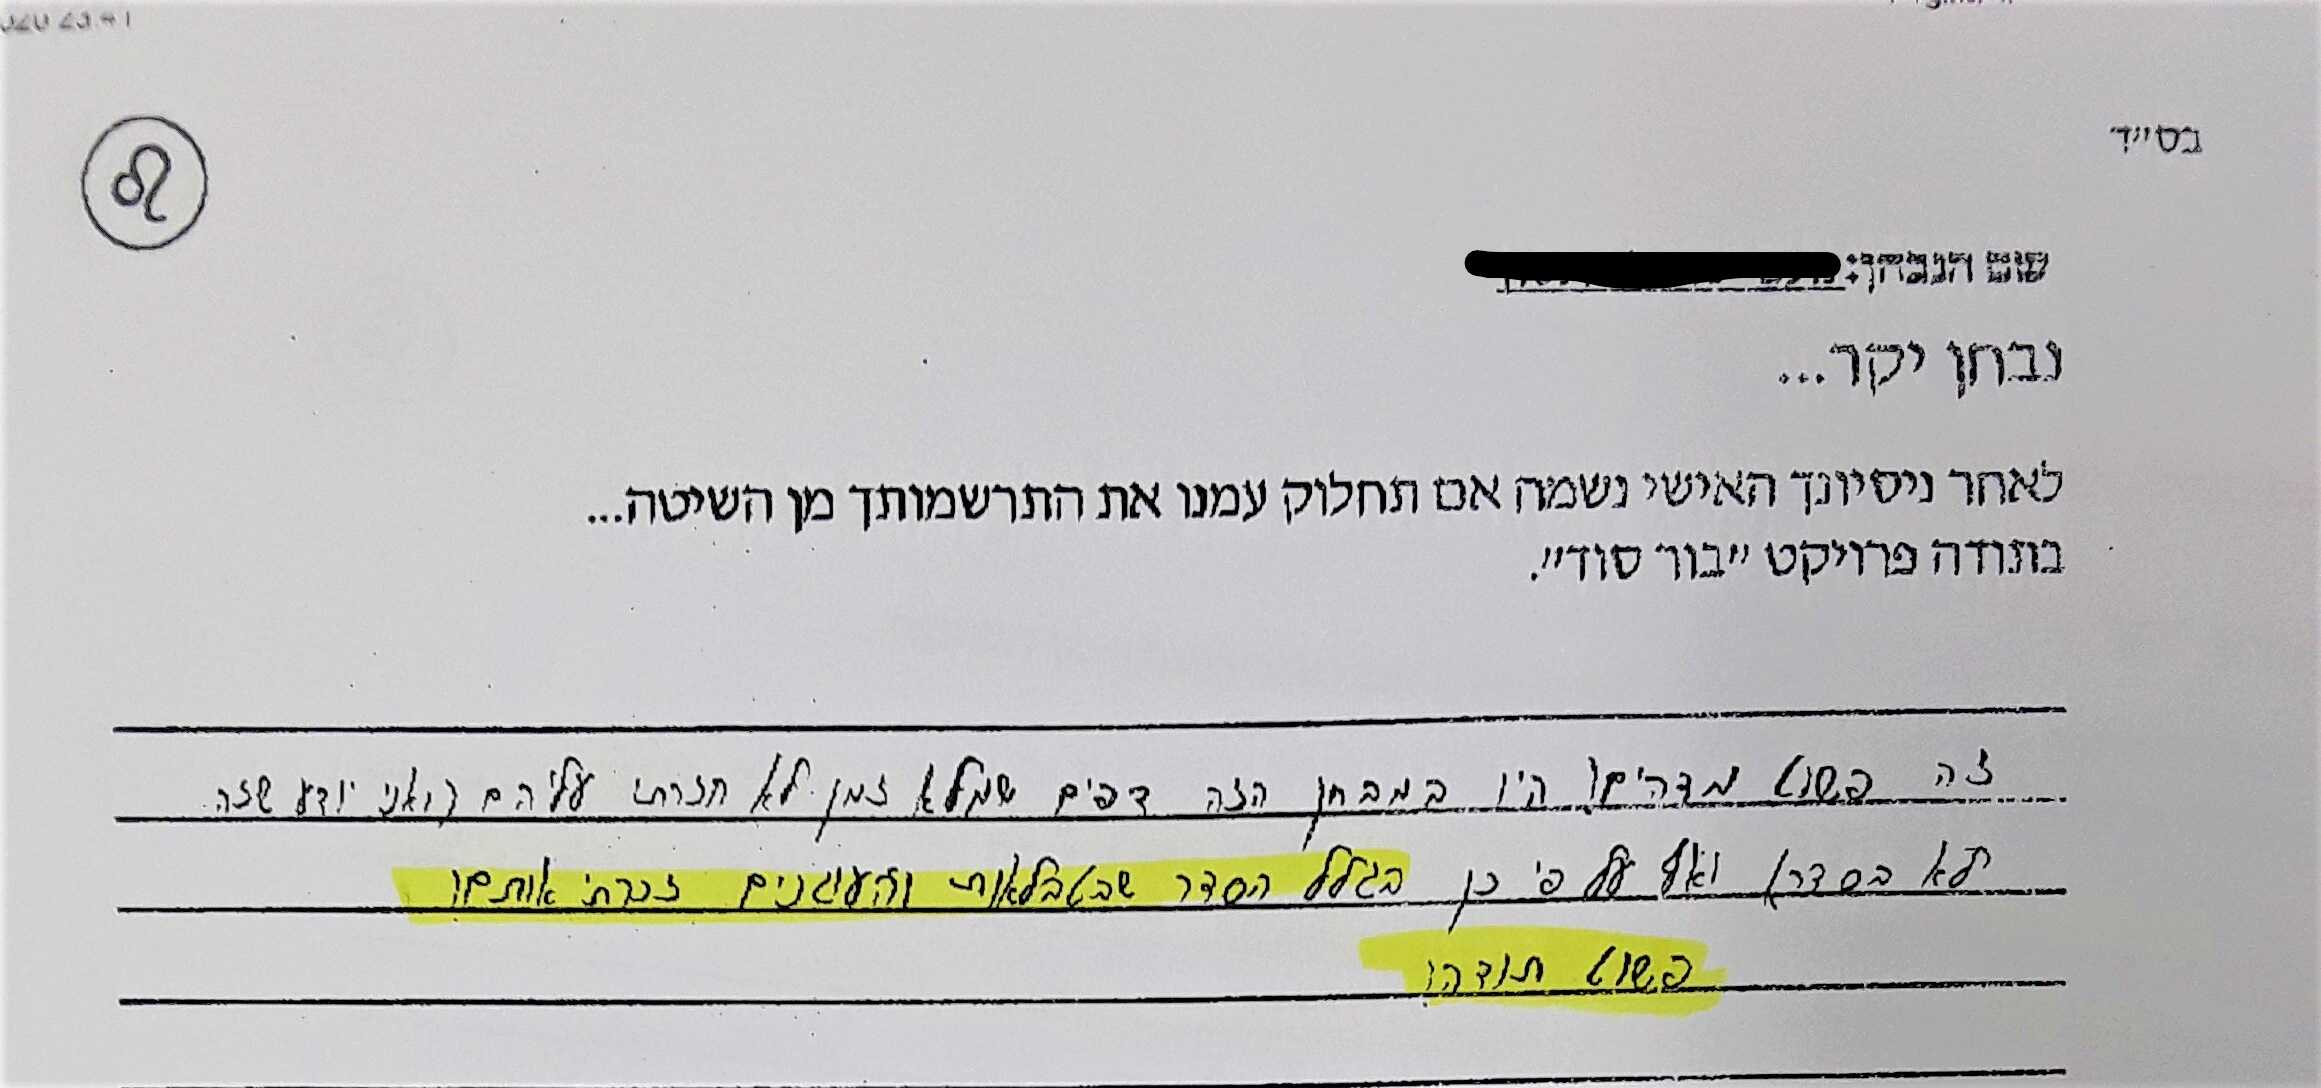 בס"ד
שם הנבחן:
נבחן יקר...
לאחר ניסיונך האישי נשמח אם תחלוק עמנו את התרשמותך מן השיטה...
בתודה פרויקט "בור סוד".
זה פשוט מדהים! היו במבחן הזה דפים שמלא זמן לא חזרתי עליהם (ואני יודע שזה
לא בסדר) ואף על פי כן בגלל הסדר שבטבלאות והעוגנים זכרתי אותם!
פשוט תודה!